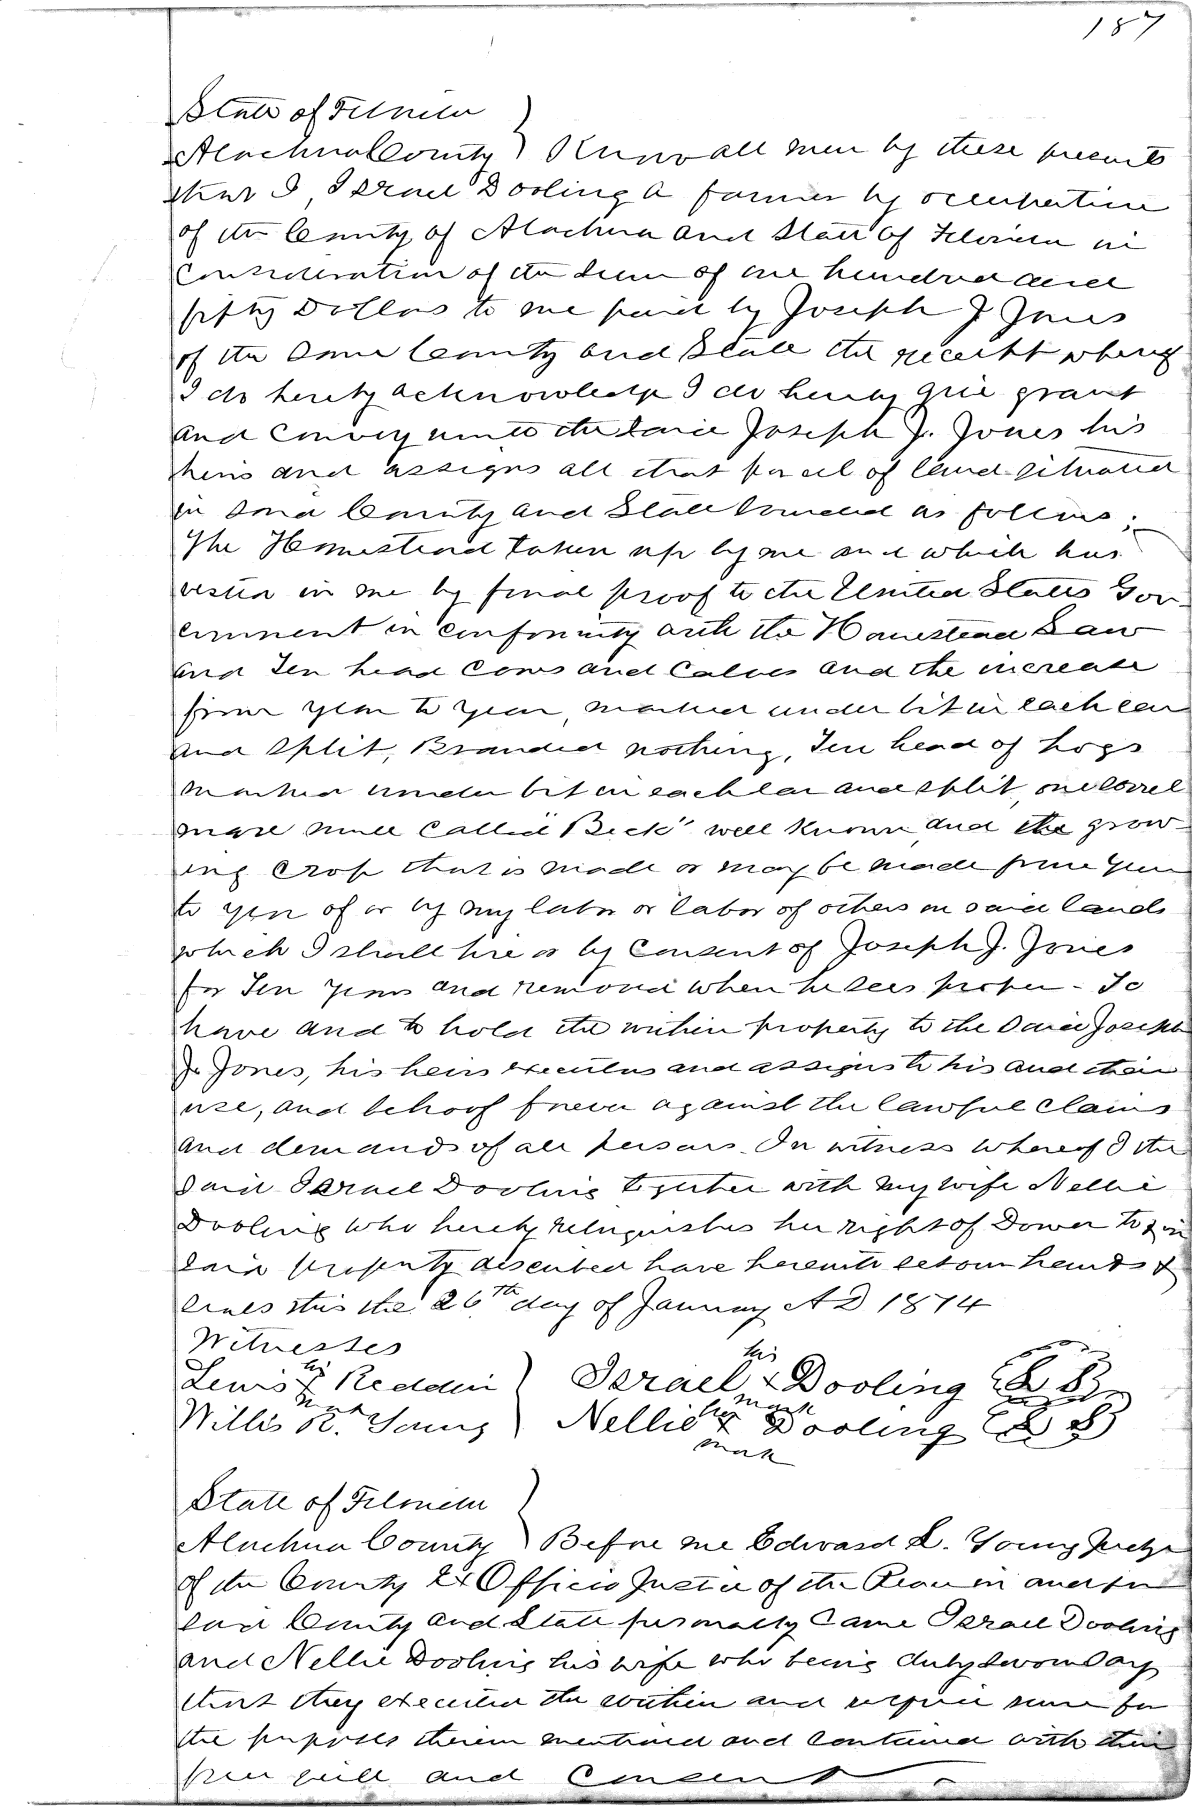 187
State of Florida
Alachua County } Know all men by these presents
that I, Israel Dooling a farmer by occupation
of the County of Alachua and State of Florida in
consideration of the Sum of one hundred and
fifty Dollars to me paid by Joseph J Jones
of the Same County and State the receipt whereof
I do hereby acknowledge I do hereby give grant
and convey unto the Said Joseph J. Jones his
heirs and assigns all that parcel of land situated
in Said County and State bounded as follows;
The Homestead taken up by me and which has
vested in me by final proof to the United States Gov-
ernment in conformity with the Homestead Law
and Ten head Cows and Calves and the increase
from year to year, marked under bit in each ear
and split, Branded nothing, Ten head of hogs
marked under bit in each ear and split, one sorrel
mare mule called "Beck" well known, and the grow-
ing Crop that is made or may be made from year
to year of or by my labor or labor of others on said lands
which I shall hire or by consent of Joseph J. Jones
for Ten years and removed when he sees proper - To
have and to hold the within property to the Said Joseph
J. Jones, his heirs executors and assigns to his and their
use, and behoof forever against the lawful claims
and demands of all persons. In witness whereof I the
said Israel Dooling together with my wife Nellie
Dooling who hereby relinquishes her right of Dower to & in
said property described have hereunto set our hands &
seals this the 26th day of January A D 1874
Witnesses
Lewis his x mark Reddin } Israel his x mark Dooling L S
Willis R. Young } Nellie her x mark Dooling L S
State of Florida
Alachua County } Before me Edward L. Young Judge
of the County Ex Officio Justice of the Peace in and for
said County and State personally Came Israel Dooling
and Nellie Dooling his wife who being duly sworn Say
that they executed the within and same for
the purposes therein mentioned and contained with their
free will and Consent